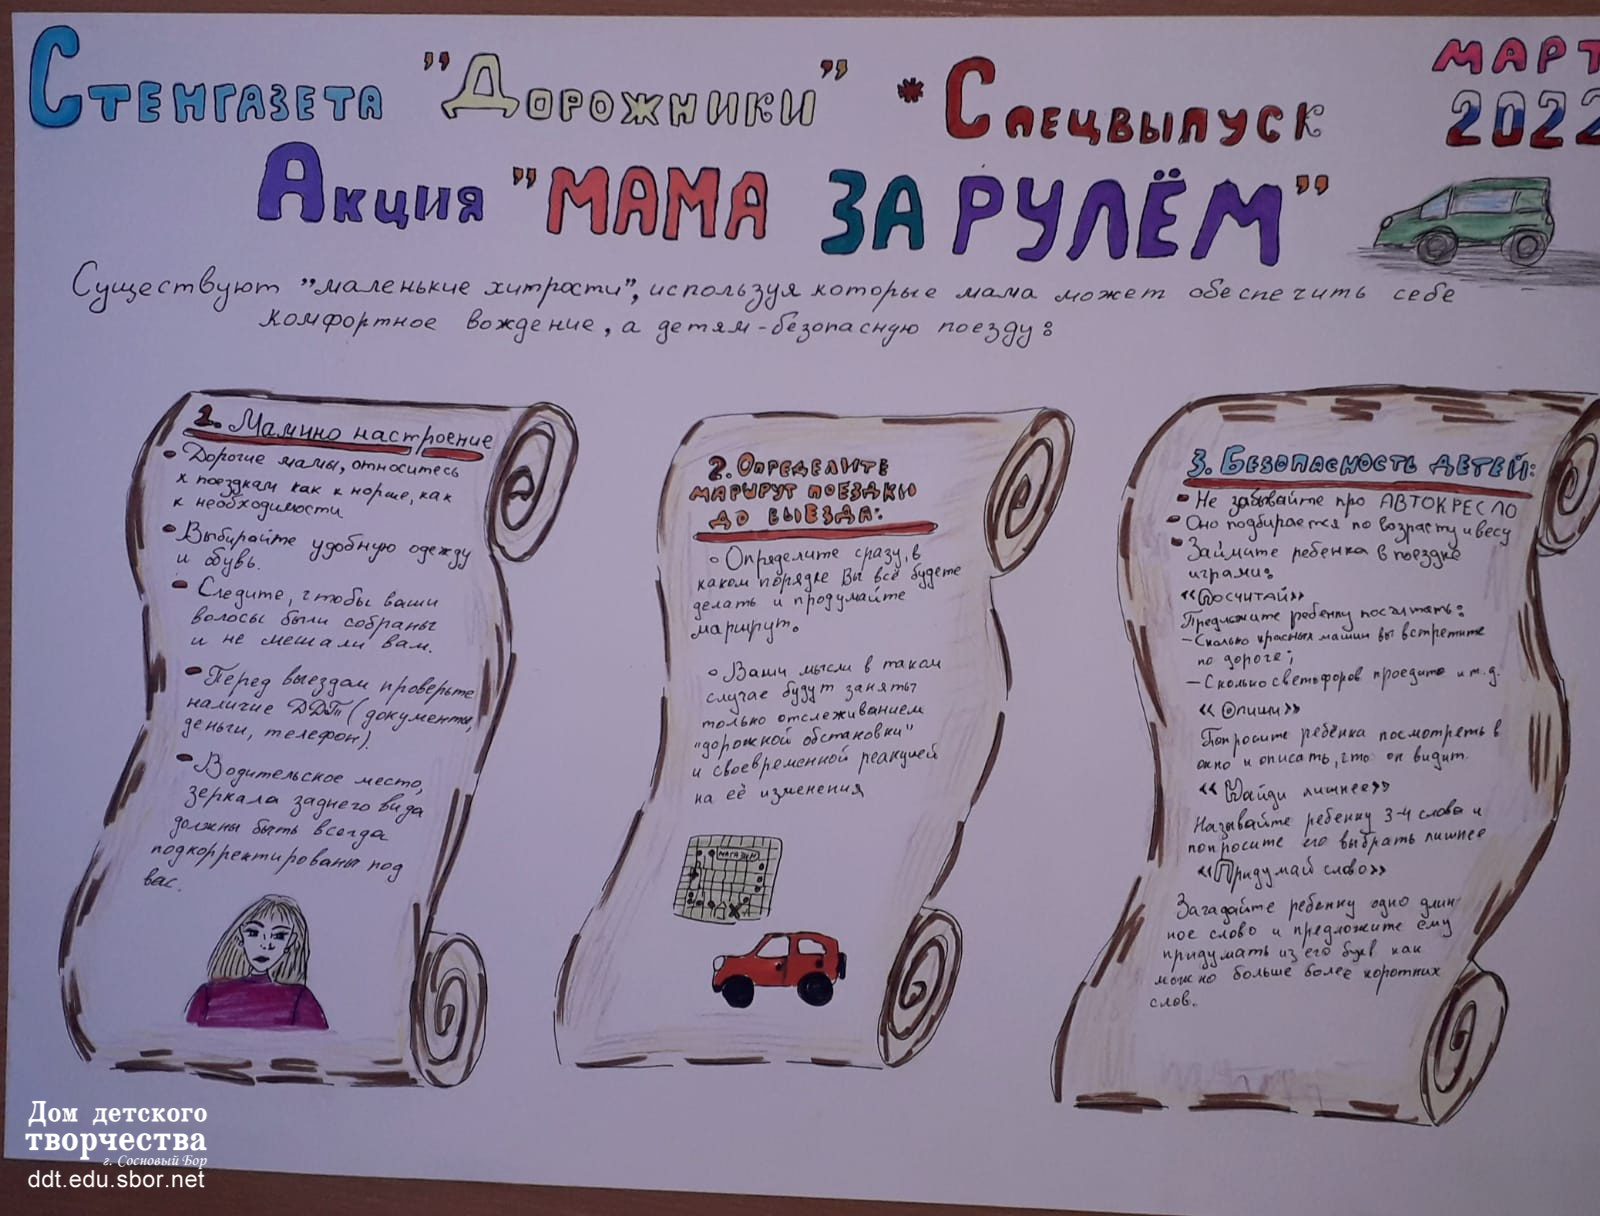 Стенгазета "Дорожники" * Спецвыпуск
МАРТ
2022
Акция "МАМА ЗА РУЛЁМ"
Существуют "маленькие хитрости", используя которые мама может обеспечить себе
комфортное вождение, а детям-безопасную поезду:
1. Мамино настроение
Дорогие мамы, относитесь
к поездкам как к норме, как
к необходимости
Выбирайте удобную одежду
и обувь.
Следите, чтобы ваши
волосы были собраны
и не мешали вам.
Перед выездом проверьте
наличие ДДТ (документы,
деньги, телефон).
Водительское место,
зеркала заднего вида
должны быть всегда
подкорректированы под
вас.
2. Определите
маршрут поездки
до выезда:
Определите сразу, в
каком порядке Вы всё будете
делать и продумайте
маршрут.
Ваши мысли в таком
случае будут заняты
только отслеживанием
"дорожной обстановки"
и своевременной реакцией
на её изменения
МАГАЗИН
3. Безопасность детей:
Не забывайте про АВТОКРЕСЛО
Оно подбирается по возрасту и весу
Займите ребенка в поездке
играми:
«Посчитай»
Предложите ребенку посчитать:
- Сколько красных машин вы встретите
по дороге;
- Сколько светофоров проедите и т.д.
«Опиши»
Попросите ребёнка посмотреть в
окно и описать, что он видит.
«Найди лишнее»
Называйте ребенку 3-4 слова и
попросите его выбрать лишнее
«Придумай слово»
Загадайте ребенку одно длин
ное слово и предложите ему
придумать из его букв как
можно больше более коротких
слов.
Дом детского
творчества
г. Сосновый Бор
ddt.edu.sbor.net